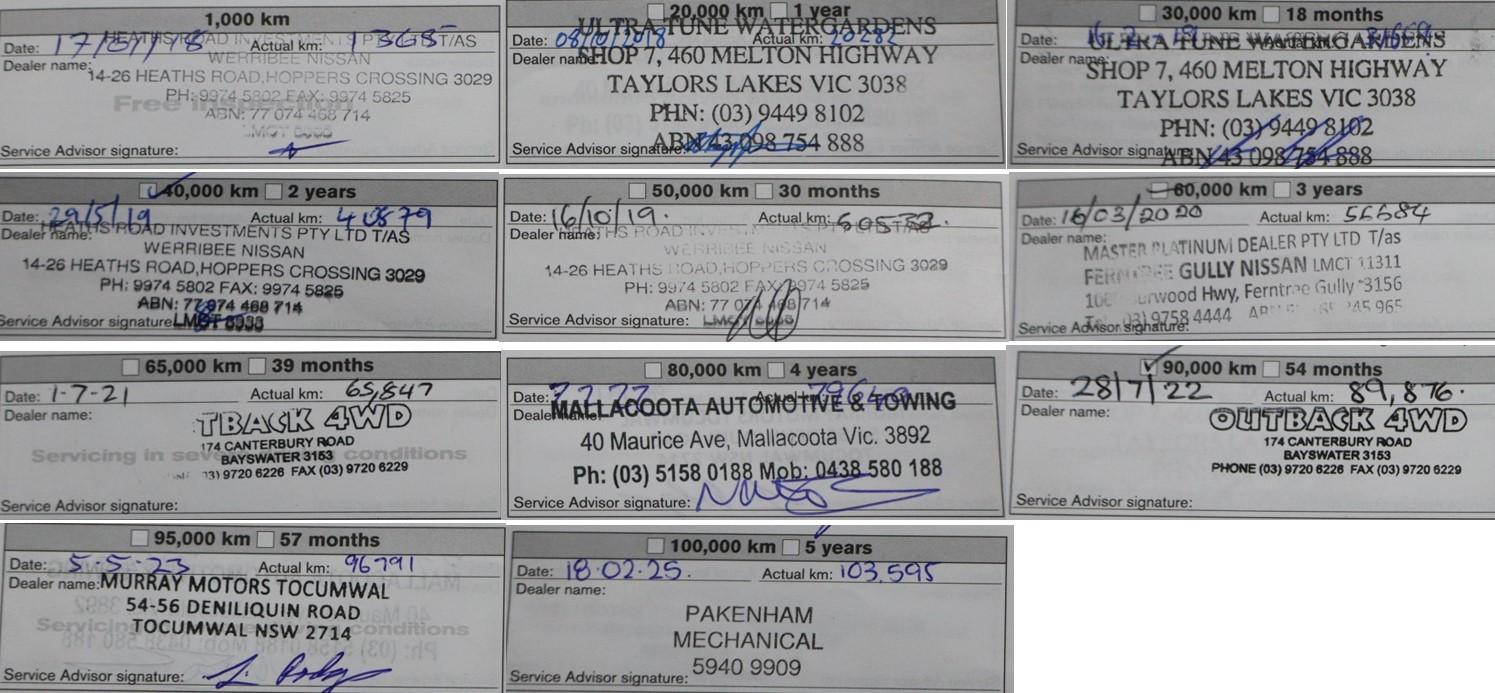 1,000 km
Date: 17/01/18 Actual km: 1365
Dealer name: HEATHS ROAD INVESTMENTS PTY LTD T/AS
WERRIBEE NISSAN
14-26 HEATHS ROAD,HOPPERS CROSSING 3029
PH: 9974 5802 FAX: 9974 5825
Free Inspection
ABN: 77 074 468 714
LMCT
Service Advisor signature:
20,000 km 1 year
Date: 08/10/2018 Actual km: 20282
Dealer name: ULTRA TUNE WATERGARDENS
SHOP 7, 460 MELTON HIGHWAY
TAYLORS LAKES VIC 3038
PHN: (03) 9449 8102
ABN 43 098 754 888
Service Advisor signature:
30,000 km 18 months
Date: Actual km:
Dealer name: ULTRA TUNE WATERGARDENS
SHOP 7, 460 MELTON HIGHWAY
TAYLORS LAKES VIC 3038
PHN: (03) 9449 8102
ABN 43 098 754 888
Service Advisor signature:
40,000 km 2 years
Date: 29/5/19 Actual km: 40879
Dealer name: HEATHS ROAD INVESTMENTS PTY LTD T/AS
WERRIBEE NISSAN
14-26 HEATHS ROAD,HOPPERS CROSSING 3029
PH: 9974 5802 FAX: 9974 5825
ABN: 77 074 468 714
Service Advisor signature: LMCT
50,000 km 30 months
Date: 16/10/19. Actual km:
Dealer name: HEATHS ROAD INVESTMENTS PTY LTD T/AS
WERRIBEE NISSAN
14-26 HEATHS ROAD,HOPPERS CROSSING 3029
PH: 9974 5802 FAX: 9974 5825
ABN: 77 074 468 714
Service Advisor signature: LMCT
60,000 km 3 years
Date: 16/03/2020 Actual km: 56684
Dealer name:
MASTER PLATINUM DEALER PTY LTD T/as
FERNTREE GULLY NISSAN LMCT 11311
Burwood Hwy, Ferntree Gully 3156
Tel: (03) 9758 4444 ABN 245 965
Service Advisor signature:
65,000 km 39 months
Date: 1-7-21 Actual km: 65,847
Dealer name:
TBACK 4WD
174 CANTERBURY ROAD
Servicing in severe driving conditions
BAYSWATER 3153
03) 9720 6226 FAX (03) 9720 6229
Service Advisor signature:
80,000 km 4 years
Date: Actual km: 79640
Dealer name: MALLACOOTA AUTOMOTIVE & TOWING
40 Maurice Ave, Mallacoota Vic. 3892
Ph: (03) 5158 0188 Mob: 0438 580 188
Service Advisor signature:
90,000 km 54 months
Date: 28/7/22 Actual km: 89,876.
Dealer name:
OUTBACK 4WD
174 CANTERBURY ROAD
BAYSWATER 3153
PHONE (03) 9720 6226 FAX (03) 9720 6229
Service Advisor signature:
95,000 km 57 months
Date: 5-5-23 Actual km: 96791
Dealer name: MURRAY MOTORS TOCUMWAL
54-56 DENILIQUIN ROAD
TOCUMWAL NSW 2714
Servicing in severe driving conditions
Service Advisor signature:
100,000 km 5 years
Date: 18.02.25. Actual km: 103,595
Dealer name:
PAKENHAM
MECHANICAL
5940 9909
Service Advisor signature: